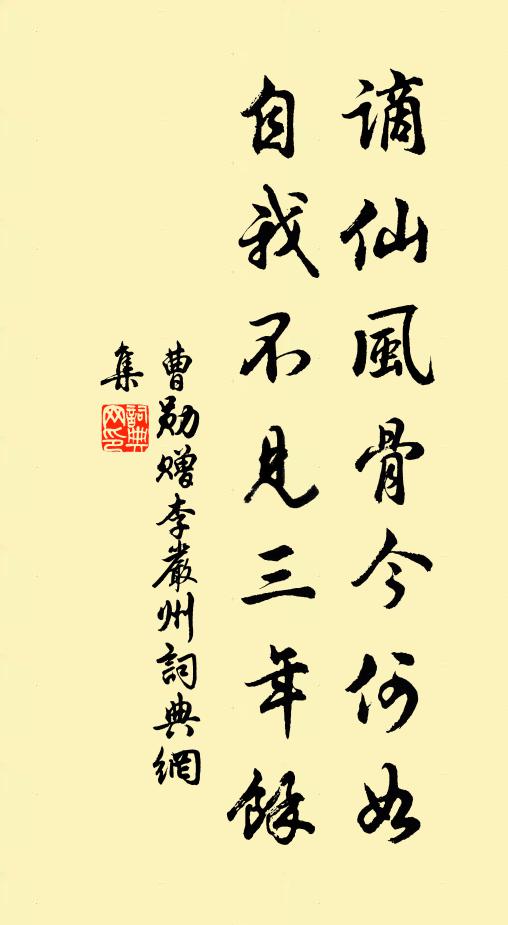 謫仙風骨今何如
自我不見三年餘
曹勛贈李嚴州詞典網
集
詞典网印